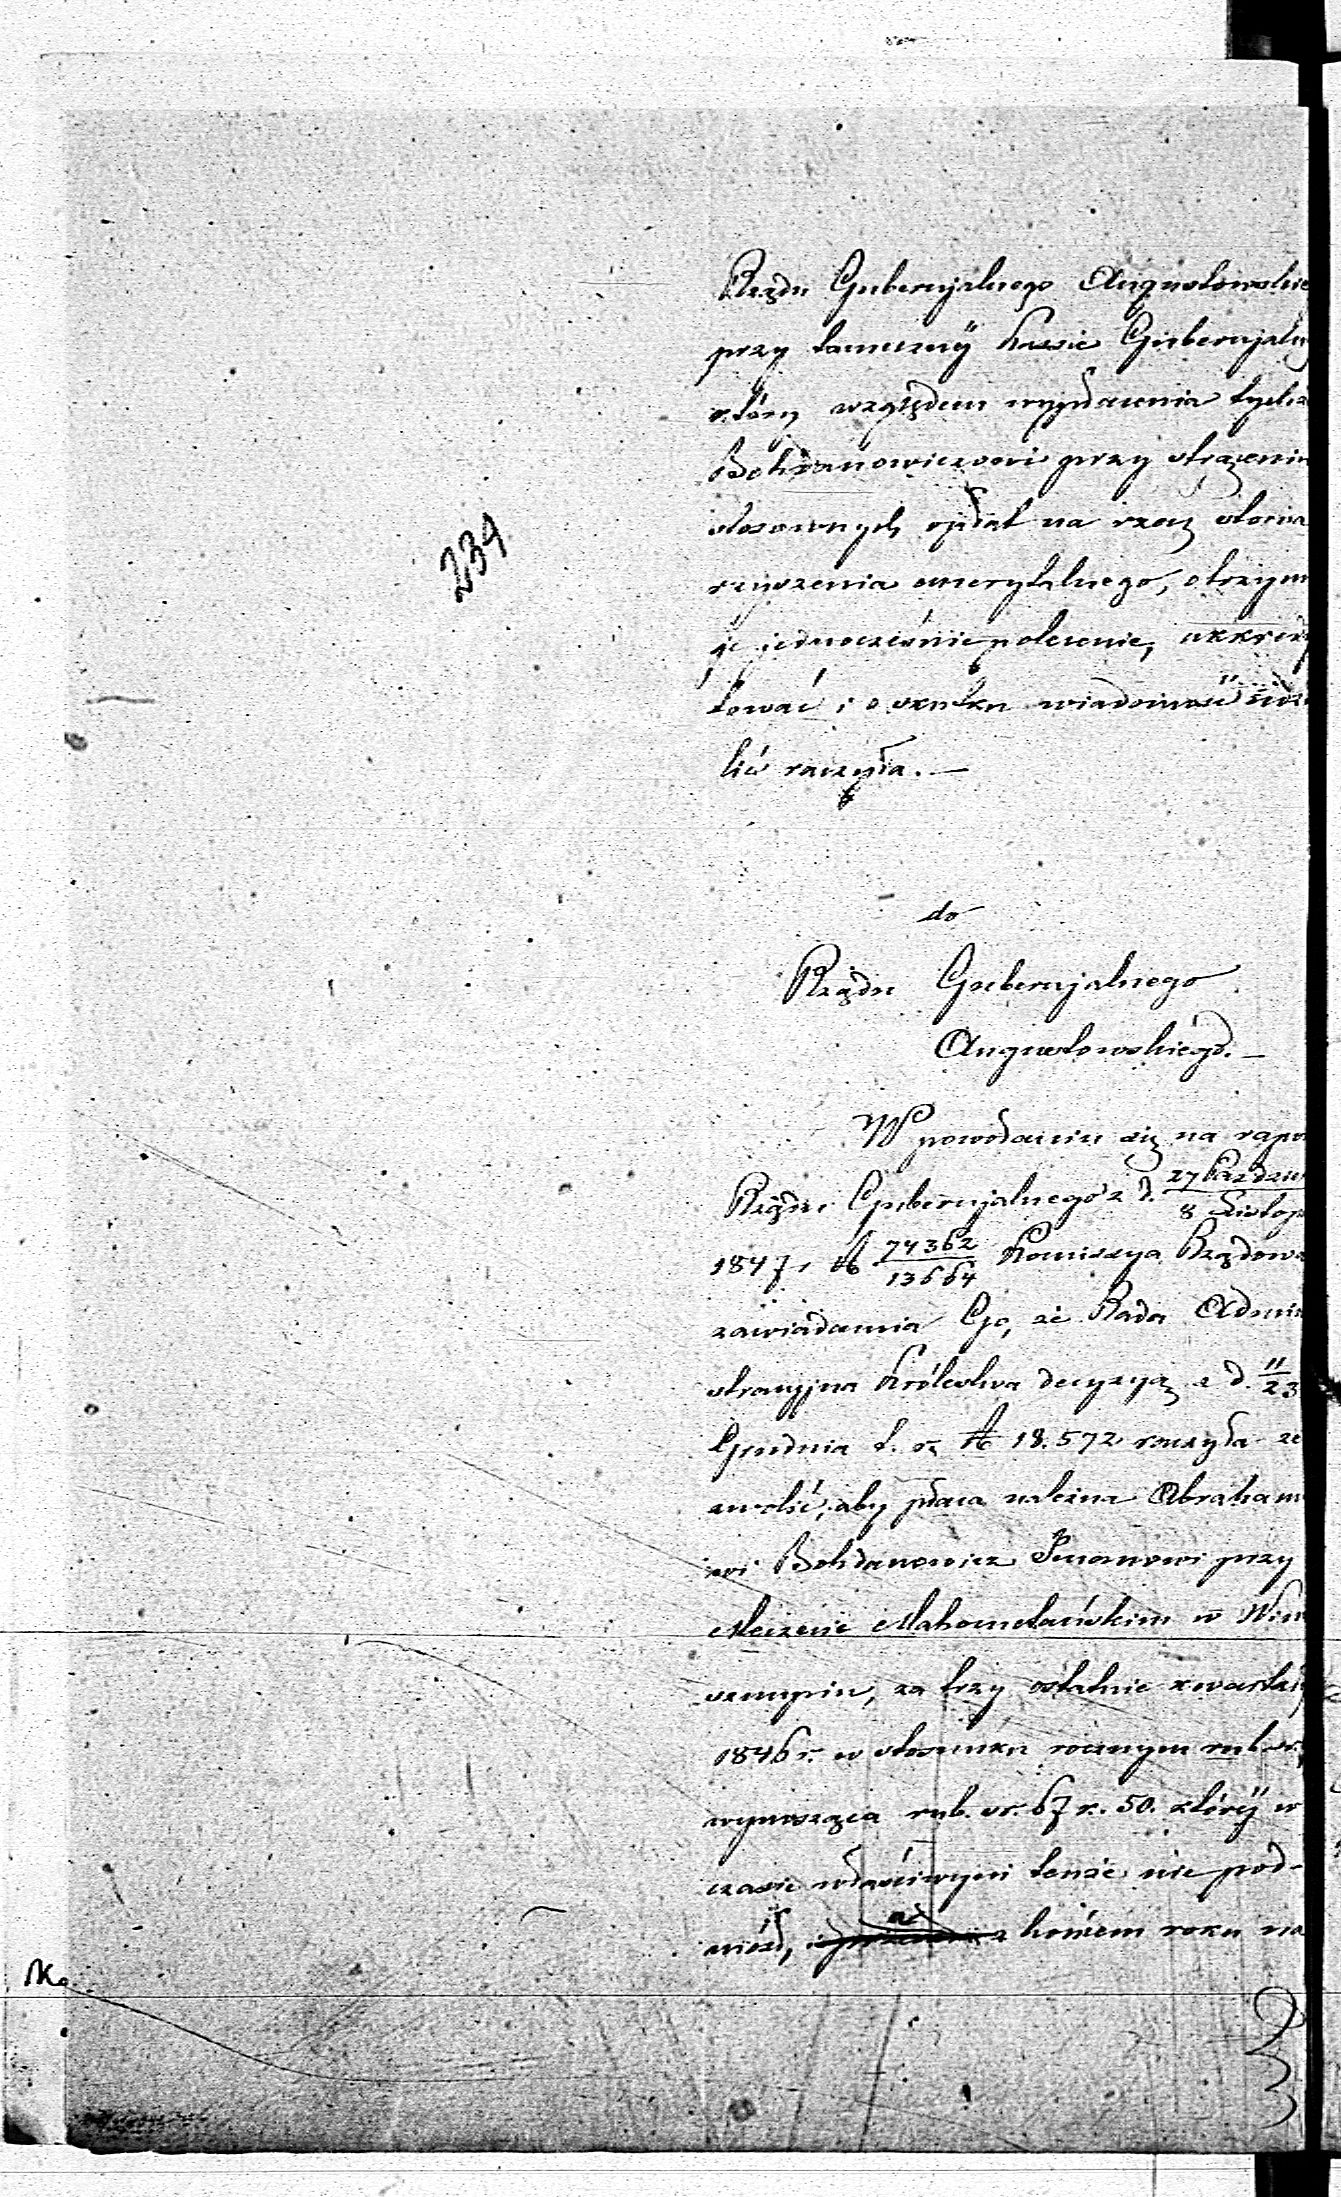 Rządu Gubernjalnego Augustowskie
przy tamecznéj Kassie Gubernjaln
który względem wypłacenia tychż
Bohdanowiczowi przy strąceniu
stosownych opłat na rzecz stowa
rzyszenia emerytalnego, otrzym
je jednocześnie polecenie, akkredy
tować i o skutku wiadomość udzi
lić raczyła. —
239
do
Rządu Gubernjalnego
Augustowskiégo. —
W powołaniu się na rapo
Rządu Gubernjalnego z d. 27 Paździer / 8 Listop
1847 r. № 74362/13664 Kommissya Rządowa
zawiadamia Go, że Rada Admini
stracyjna Królestwa decyzyą z d. 11/23
Grudnia t. r. № 18.572 raczyła ze
zwolić, aby płaca należna Abraham
wi Bohdanowicz Imamowi przy
Meczecie Mahometańskim w Win
sznupiu, za trzy ostatnie kwartały
1846 r. w stosunku rocznym rub. sr.
wynosząca rub. sr. 67 k. 50. któréj w
czasie właściwym tenże nie pod-
niósł, a z końcem roku na